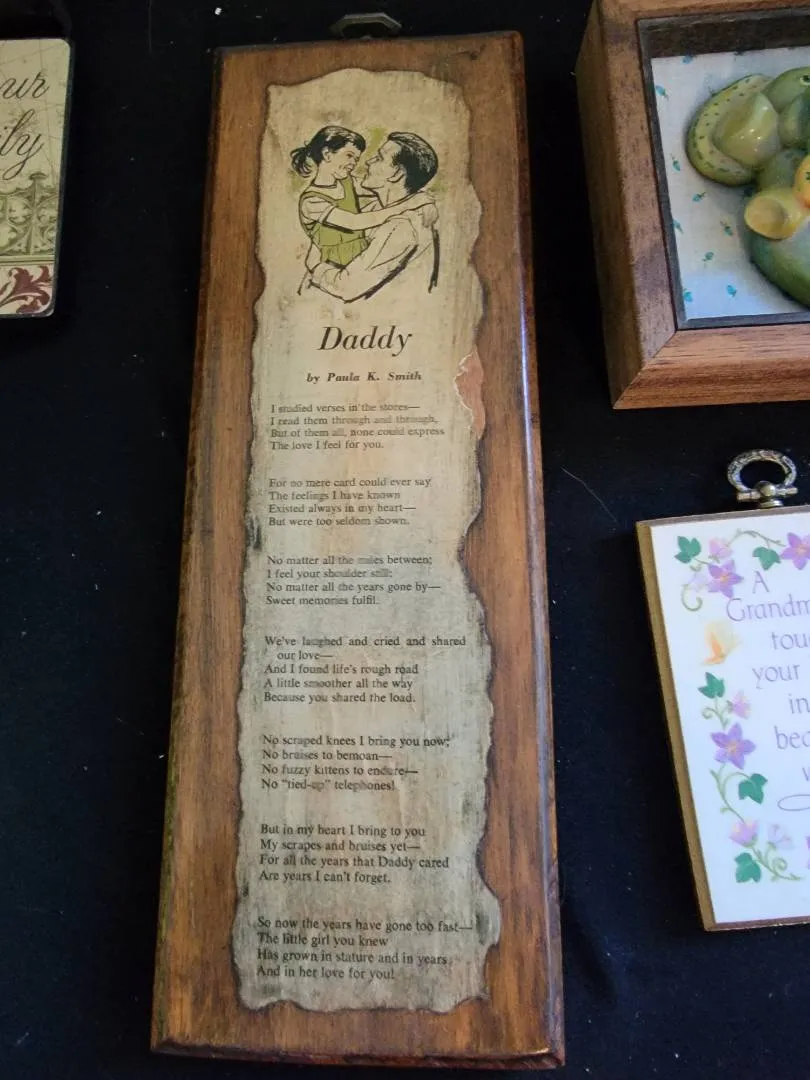 our
ily
Daddy
by Paula K. Smith
I studied verses in the stores—
I read them through and through,
But of them all, none could express
The love I feel for you.
For no mere card could ever say
The feelings I have known
Existed always in my heart—
But were too seldom shown.
No matter all the miles between;
I feel your shoulder still;
No matter all the years gone by—
Sweet memories fulfil.
We've laughed and cried and shared
our love—
And I found life's rough road
A little smoother all the way
Because you shared the load.
No scraped knees I bring you now;
No bruises to bemoan—
No fuzzy kittens to endure—
No "tied-up" telephones!
But in my heart I bring to you
My scrapes and bruises yet—
For all the years that Daddy cared
Are years I can't forget.
So now the years have gone too fast—
The little girl you knew
Has grown in stature and in years
And in her love for you!
A
Grandm
tou
your
in
bec